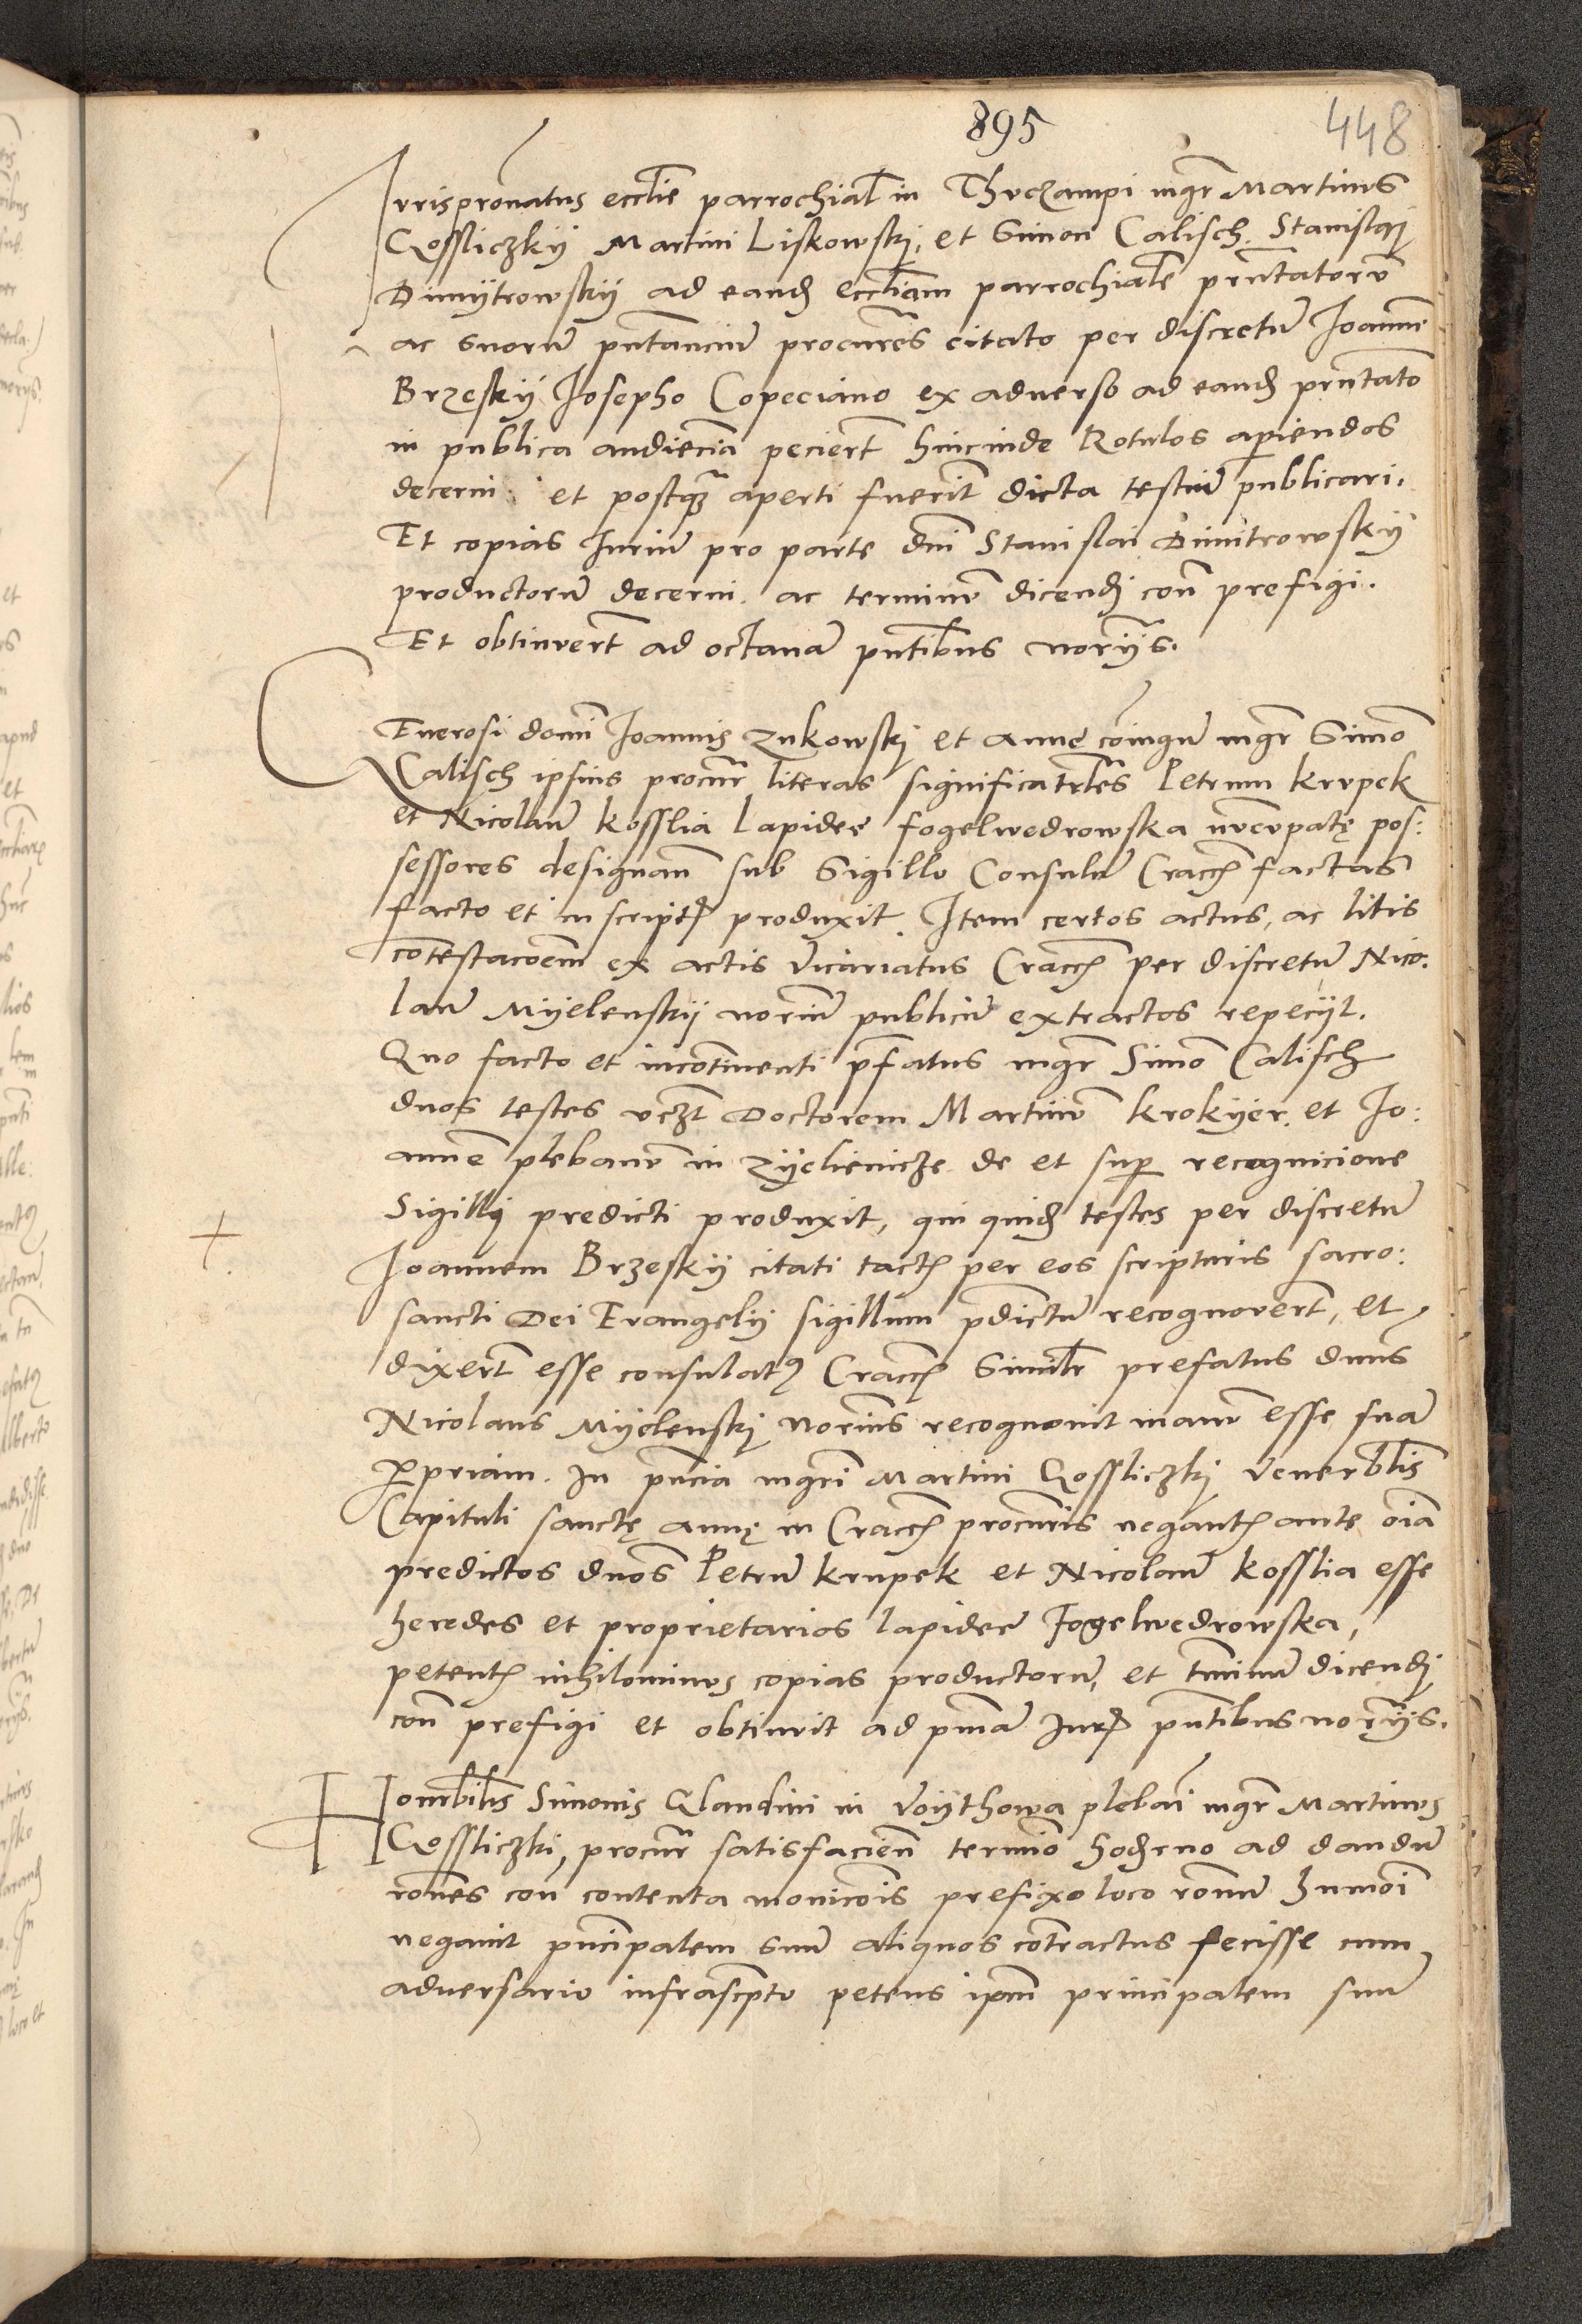 895
448
Jurispronatus ecclie parrochial in Thuczampi mgr Martinus
Gossliczkÿ Martini Liskowskj, et Simon Calisch Stanislaj
Dimÿtrowskÿ ad eand eccliam parrochiale pntatoru
ac suoru pntanciu procures citato per discretu Joanne
Brzeskÿ Josepho Copeciano ex aduerso ad eand prntato
in publica audiecia peciert hincinde Rotulos apiendos
decerni: et postqz aperti fuerit dicta testiu publicari.
Et copias Juriu pro parte dni Stanislai Dimitrowskÿ
productoru decerni. ac terminu dicendj con prefigi.
Et obtinuert ad octaua pntibus norÿs.
Generosi domi Joannis Zukowskj et annę coniugu mgr Simo
Calisch ipsius procur literas significatrles Petrum Krupek
et Nicolau Kosslia lapidee fogelwedrowska nucupatę pos:
sessores designan sub Sigillo Consulu Cracc factas
facto et in script produxit. Item certos actus, ac litis
contestacoem ex actis vicariatus Cracc per discretu Nico:
lau Mÿelenskÿ noriu publicu extractos repecÿt.
Quo facto et incotinenti pfatus mgr Simo Calisch
duos testes vczt Doctorem Martinu Krokÿer, et Jo:
anne plebanu in Zÿelienicze de et sup recognicione
Sigilli predicti produxit, qui quid testes per discretu
Joannem Brzeskÿ citati tact per eos scripturis sacro:
sancti Dei Evangelÿ sigillum pdictu recognouert, et
dixert esse consulat9 Cracc Similr prefatus dnus
Nicolaus Mÿelenskj norius recognouit manu esse sua
propriam. In pncia mgri Martini Gossliczkj venerblis
Capituli sanctę annę in Cracc procuris negant ante oia
predictos dnos Petru Krupek et Nicolau Kosslia esse
heredes et proprietarios lapidee Fogelwedrowska,
petent nihilominus copias productoru, et tminu dicendj
con prefigi et obtinuit ad pma Jurd pntibus norÿs.
Honorbilis Simonis Glandini in Voÿthowa plebai mgr Martinus
Gossliczki, procur satisfacien termio hodrno ad dandu
rones con contenta monicois prefixo loco ronu humoi
negauit pncipalem suu aliquos contractus fecisse cum
aduersario infrascpto petens ipm principalem suu